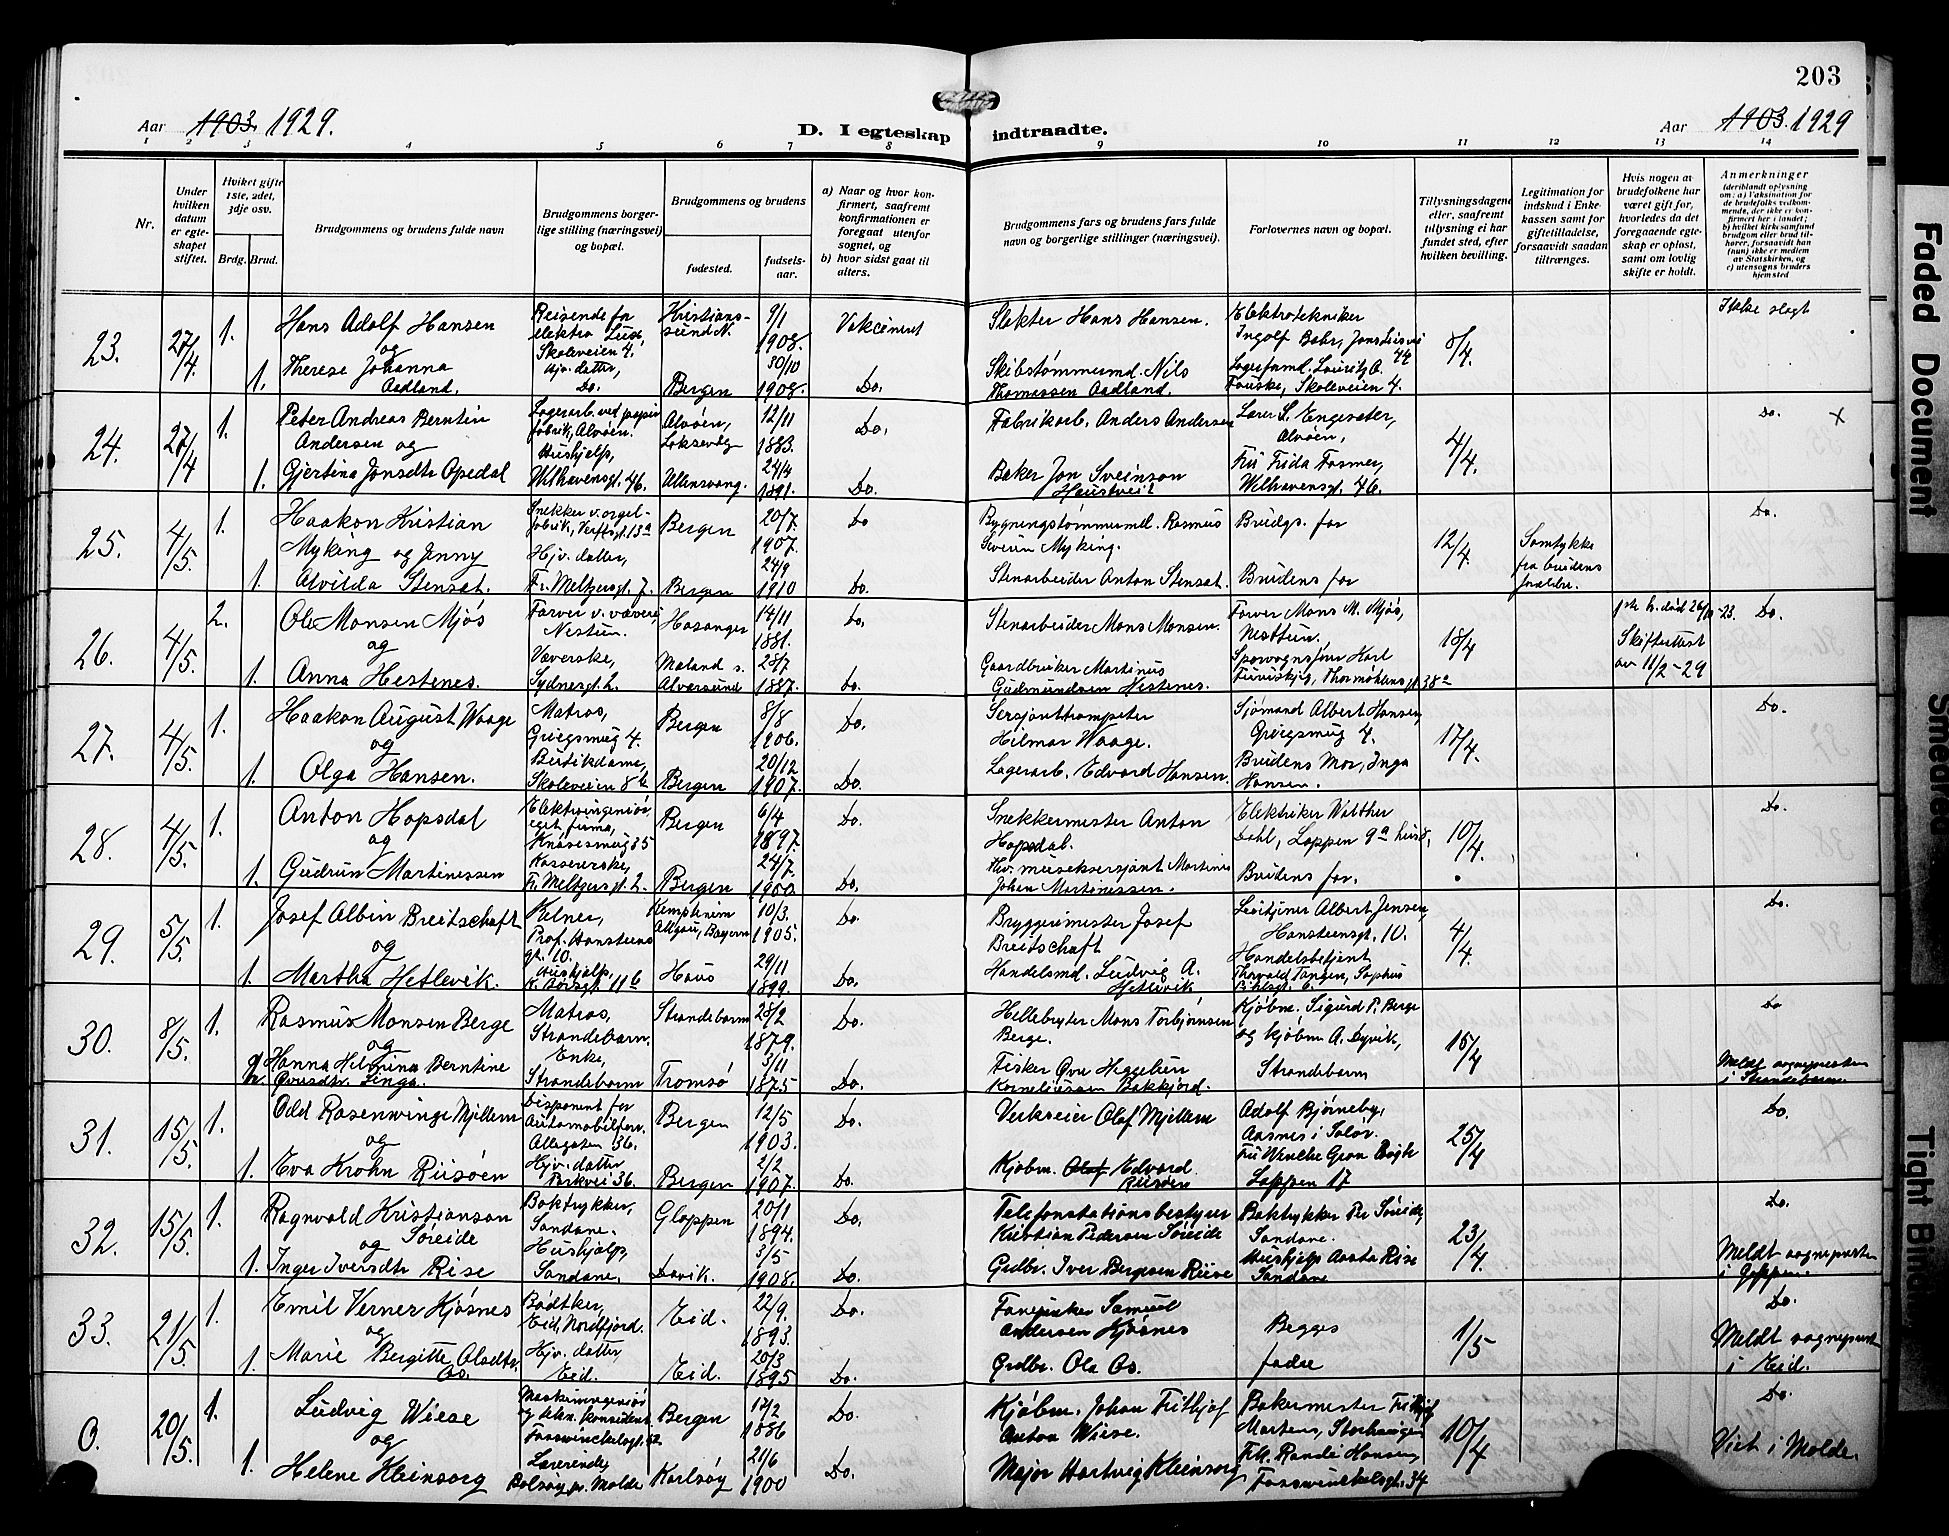 203
Aar 1903. 1929.
D. I egteskap indtraadte.
Aar 1903. 1929
1 2 3 4 5 6 7 8 9 10 11 12 13 14
Nr.
Under hvilken datum er egteskapet stiftet.
Hviket gifte 1ste, 2det, 3dje osv.
Brdg. Brud.
Brudgommens og brudens fulde navn
Brudgommens borgerlige stilling (næringsvei) og bopæl.
Brudgommens og brudens
fødested.
fødselsaar.
a) Naar og hvor konfirmert, saafremt konfirmationen er foregaat utenfor sognet, og
b) hvor sidst gaat til alters.
Brudgommens fars og brudens fars fulde navn og borgerlige stillinger (næringsvei).
Forlovernes navn og bopæl.
Tillysningsdagene eller, saafremt tillysning ei har fundet sted, efter hvilken bevilling.
Legitimation for indskud i Enkekassen samt for giftetilladelse, forsaavidt saadan tiltrænges.
Hvis nogen av brudefolkene har været gift før, hvorledes da det foregaaende egteskap er opløst, samt om lovlig skifte er holdt.
Anmerkninger (deriblandt oplysning om: a) Vaksination for de brudefolks vedkommende, der ikke er konfirmert her i landet; b) hvilket kirkesamfund brudgom eller brud tilhører, forsaavidt han (hun) ikke er medlem av Statskirken, og c) utensogns bruders hjemsted
23. 27/4 1. Hans Adolf Hansen og
Reisende for elektro Lux, Skoleveien 4.
Kristianssund N. 9/1 1908. Vakcineret
Hans Hansen.
Elektrotekniker Ingolf Bahr,
8/4. Ikke slegt
1. Therese Johanna Aadland.
Hjv. datter, Do. Bergen 30/10 1908. Do.
Skibstømmermd. Nils Thomassen Aadland.
Lauritz A. Fauske, Skoleveien 4.
24. 27/4 1. Peter Andreas Berntin Andersen og
Lagerarb. ved papirfabrik, Alvøen.
Alvøen, Laksevåg 12/11 1883. Do.
Fabrikarb. Anders Andersen
Lærer S. Engesæter, Alvøen,
4/4. Do. X
1. Gjertina Jonsdtr Opedal
Hushjelp, Welhavensgt. 46. Ullensvang. 24/4 1891. Do.
Baker Jon Sveinson
Frk Frida Fasmer, Welhavensgt. 46.
25. 4/5. 1. Haakon Kristian Myking og Jenny
Snekker v. orgelfabrik, Verftsgt. 13a
Bergen 20/7. 1907. Do
Bygningstømmermd. Rasmus Severin Myking.
Brudgs. far
12/4. Samtykke fra brudens forældre. Do.
1. Alvilda Stensæt.
Hjv. datter, Fr. Meltzersgt. 7. Bergen 24/9 1910 Do.
Stenarbeider Anton Stensæt.
Brudens far
26. 4/5. 2. Ole Monsen Mjøs og
Farver v. væveri, Nestun.
Hosanger 14/11 1881. Do.
Stenarbeider Mons Monsen.
Farver Mons M. Mjøs, Nesttun.
18/4 1ste h. død 26/11-23. Skifteattest av 11/2-29 Do.
1. Anna Hestenes.
Væverske, Sydnesgt. 2. Mæland s. Alversund 28/7 1887. Do.
Gaardbruker Martinus Gudmundsen Hestenes.
Sporvognsfører Karl Furuskjeg, Thormøhlensgt. 38a
27. 4/5. 1. Haakon August Waage og
Matros, Griegsmug 4.
Bergen 8/8 1906. Do.
Sersjanttrompeter Hilmar Waage.
Sjømand Albert Hansen, Griegsmug 4.
17/4. Do.
1. Olga Hansen.
Butikdame, Skoleveien 8b Bergen 20/12 1907. Do.
Lagerarb. Edvard Hansen.
Brudens Mor, Inga Hansen.
28. 4/5. 1. Anton Hopsdal og
Elektroingeniør eget firma, Knøsesmug 35
Bergen 6/4 1897. Do.
Snekkermester Anton Hopsdal.
Elektriker Walther Dahl, Loppen 9a
10/4. Do.
1. Gudrun Martinussen
Kassererske, Fr. Meltzersgt. 2. Bergen 24/7. 1900. Do.
Hv. musiksersjant Martinus Johan Martinussen.
Brudens far.
29. 5/5. 1. Josef Albin Breitschaft og
Kelner, Prof. Hansteensgt. 10.
Kempten im Allgäu, Bayern 10/3. 1905. Do.
Bryggerimester Josef Breitschaft
Albert Jensen, Hansteensgt. 10.
4/4. Do.
1. Martha Hetlevik.
Hushjelp, 11b Haus 29/11 1899. Do.
Handelsmd. Ludvig A. Hetlevik
Handelsbetjent Thorvald Tangen, Sophus
30. 8/5. 1. Rasmus Monsen Berge og
Matros, Strandebarm.
Strandebarm 28/2 1879. Do.
Hellebryter Mons Torbjørnsen Berge.
Kjøbm. Sigurd P. Berge og kjøbm A. Dyvik, Strandebarm
15/4 Do
Hanna Helmina Berntine Ovesdtr. Linga.
Enke, Strandebarm Tromsø 3/11 1875 Do.
Fisker Ove Heggelun Korneliussen Bakkjord.
Meldt sogneprsten i Strandebarm.
31. 15/5. 1. Odd Rosenvinge Mjellem og
Disponent for Automobilforr. Allegaten 36.
Bergen 12/5 1903. Do.
Verkseier Olaf Mjellem
Adolf Bjørneby, Aasnes i Solør.
25/4 Do.
1. Eva Krohn Riisøen
Hjv. datter, Parkvei 36. Bergen 2/2 1907. Do.
Kjøbm. Olaf Edvard Riisøen
Fru Wenche Gran Bøgh Loppen 17
32. 15/5. 1. Ragnvald Kristianson Søreide og
Boktrykker, Sandane.
Gloppen 20/1 1894. Do.
Telefonstationsbestyrer Kristian Pedersen Søreide
Boktrykker Per Søreide, Sandane.
23/4. Do.
1. Inger Iversdtr Rise
Hushjelp, Sandane. Davik. 3/5 1908. Do.
Grdbr. Iver Bergesen Riise
Hushjelp Aasta Rise Sandane
Meldt sogneprsten i Gloppen.
33. 21/5. 1. Emil Verner Kjøsnes og
Bødtker, Eid, Nordfjord.
Eid. 22/9. 1893. Do.
Samuel Andersen Kjøsnes
Begges fædre
1/5 Do.
1. Marie Bergitte Olsdtr. Os.
Hjv. datter, Eid. Eid. 20/3 1895 Do.
Grdbr. Ola Os.
Meldt sogneprst i Eid.
0. 20/5. 1. Ludvig Wiese og
Maskiningeniør
Bergen 17/2 1886 Do.
Kjøbm. Johan Fritjof Anton Wiese.
Bakermester Fritjof Martens, Storhaugen
10/4 Do.
1. Helene Kleinsorg
Lærerinde, Bolsøy pr. Molde Karlsøy 21/6 1900 Do.
Major Hartvig Kleinsorg
Frk. Randi Hansen, Fosswinckelsgt. 34
Viet i Molde
Faded Document
Smeared
Tight Bind